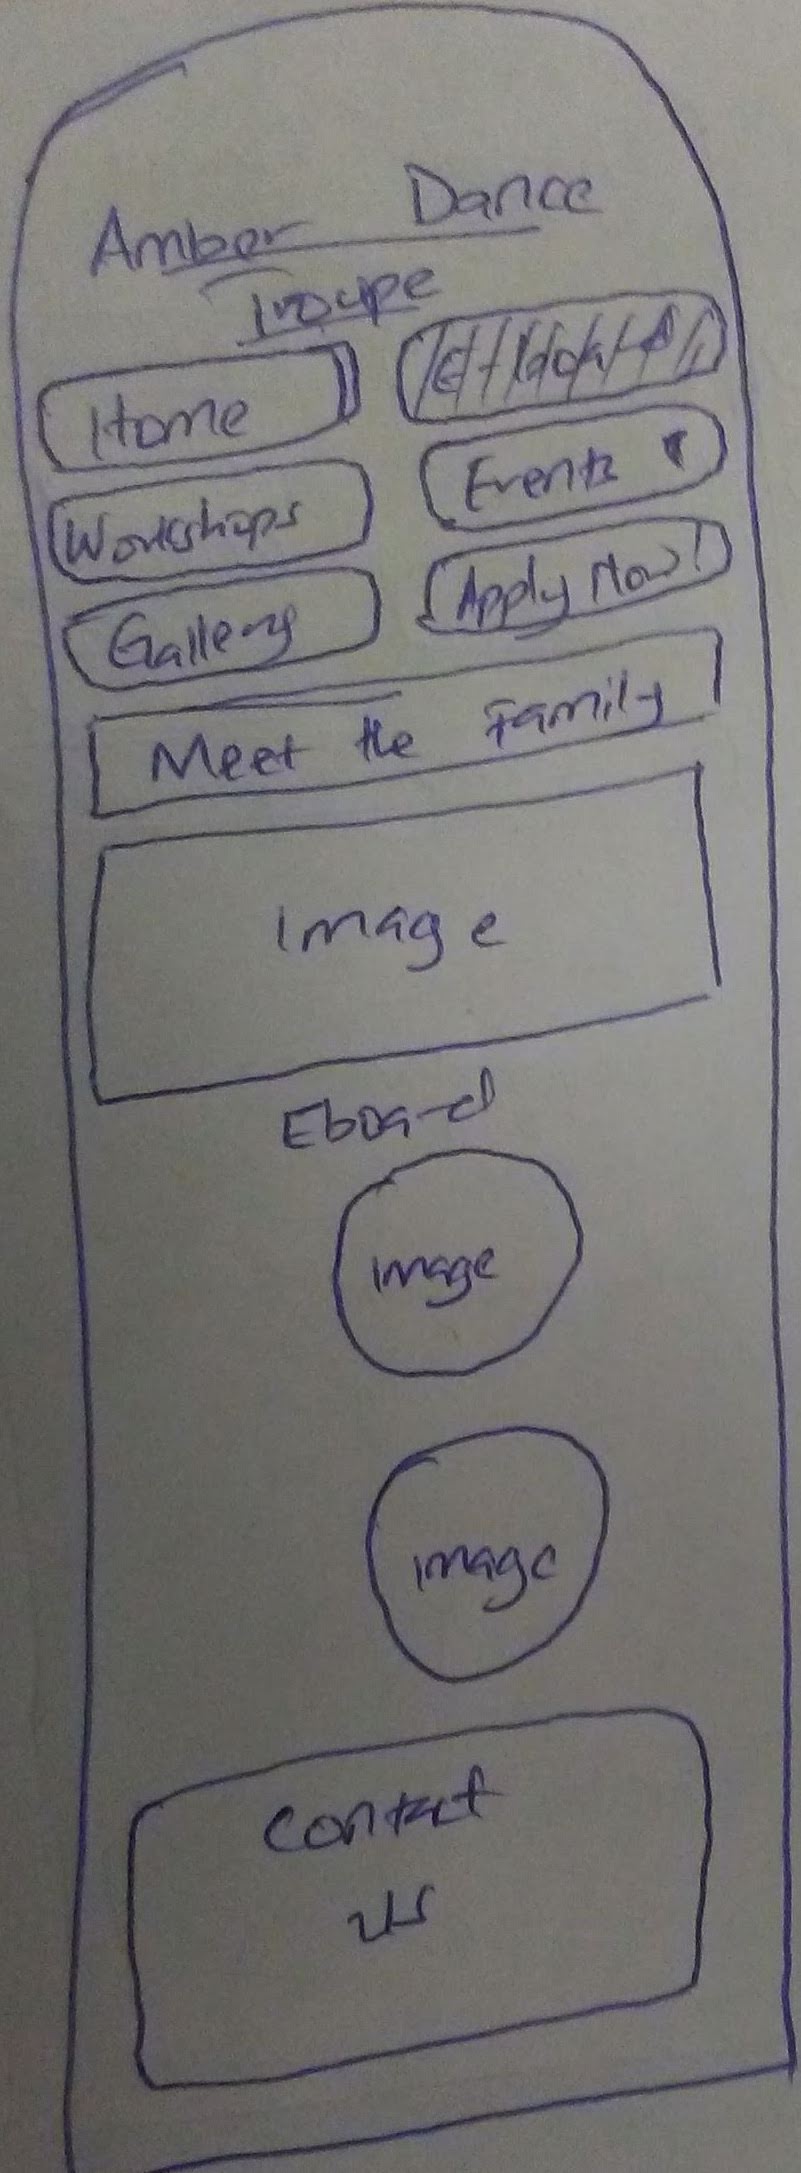 Amber Dance
Troupe
Home
Workshops
Events
Gallery
Apply Now!
Meet the Family
Image
Eboard
Image
Image
Contact
us